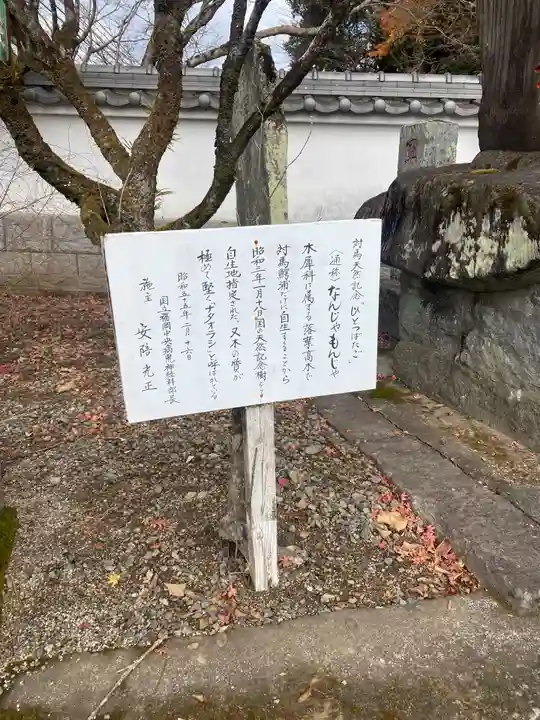 対馬天然記念 "ひとつばたご"
〈通称〉なんじゃもんじゃ
木犀科に属する落葉高木で
対馬鰐浦だけに自生することから
昭和三年一月十八日国の天然記念樹として
自生地指定された 又木の質が
極めて堅く "ナタオラシ" と呼ばれている
昭和五十五年二月十六日
国立福岡中央病院 神経科部長
施主 安陪光正